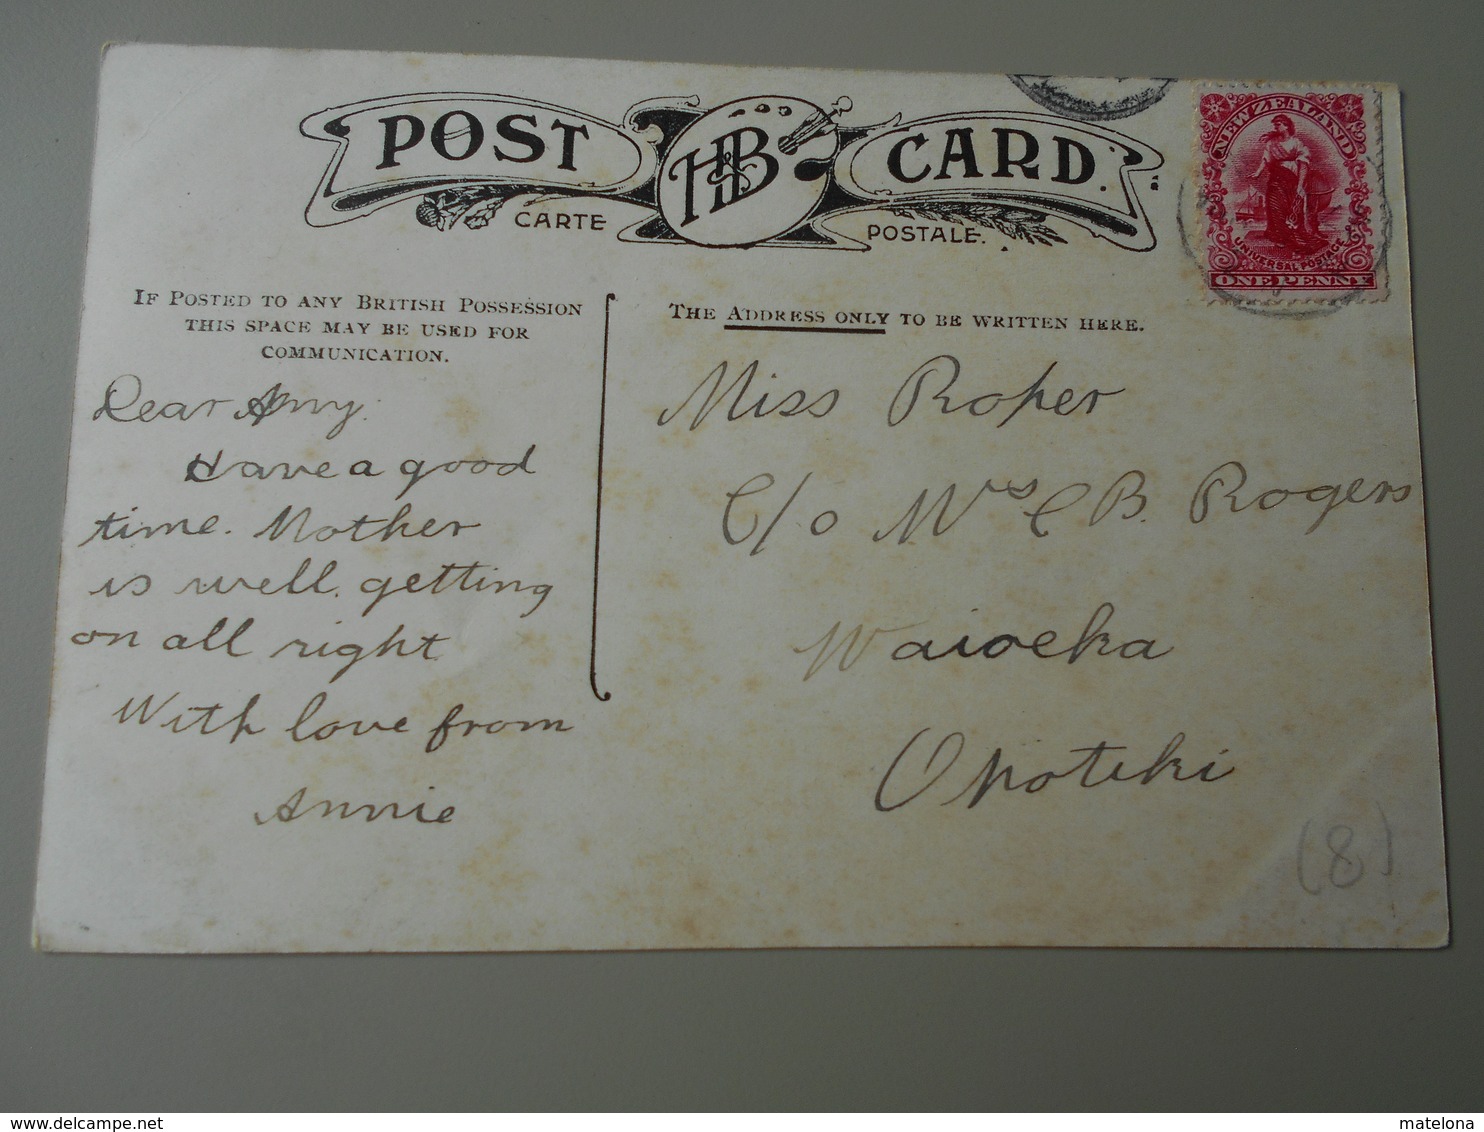 POST CARD.
H&B
CARTE POSTALE.
NEW ZEALAND
UNIVERSAL POSTAGE
ONE PENNY
IF POSTED TO ANY BRITISH POSSESSION
THIS SPACE MAY BE USED FOR
COMMUNICATION.
THE ADDRESS ONLY TO BE WRITTEN HERE.
Dear Amy.
Have a good
time. Mother
is well. getting
on all right
With love from
Annie
Miss Roper
C/o Mrs C B. Rogers
Waioeka
Opotiki
(8)
delcampe.net
matelona